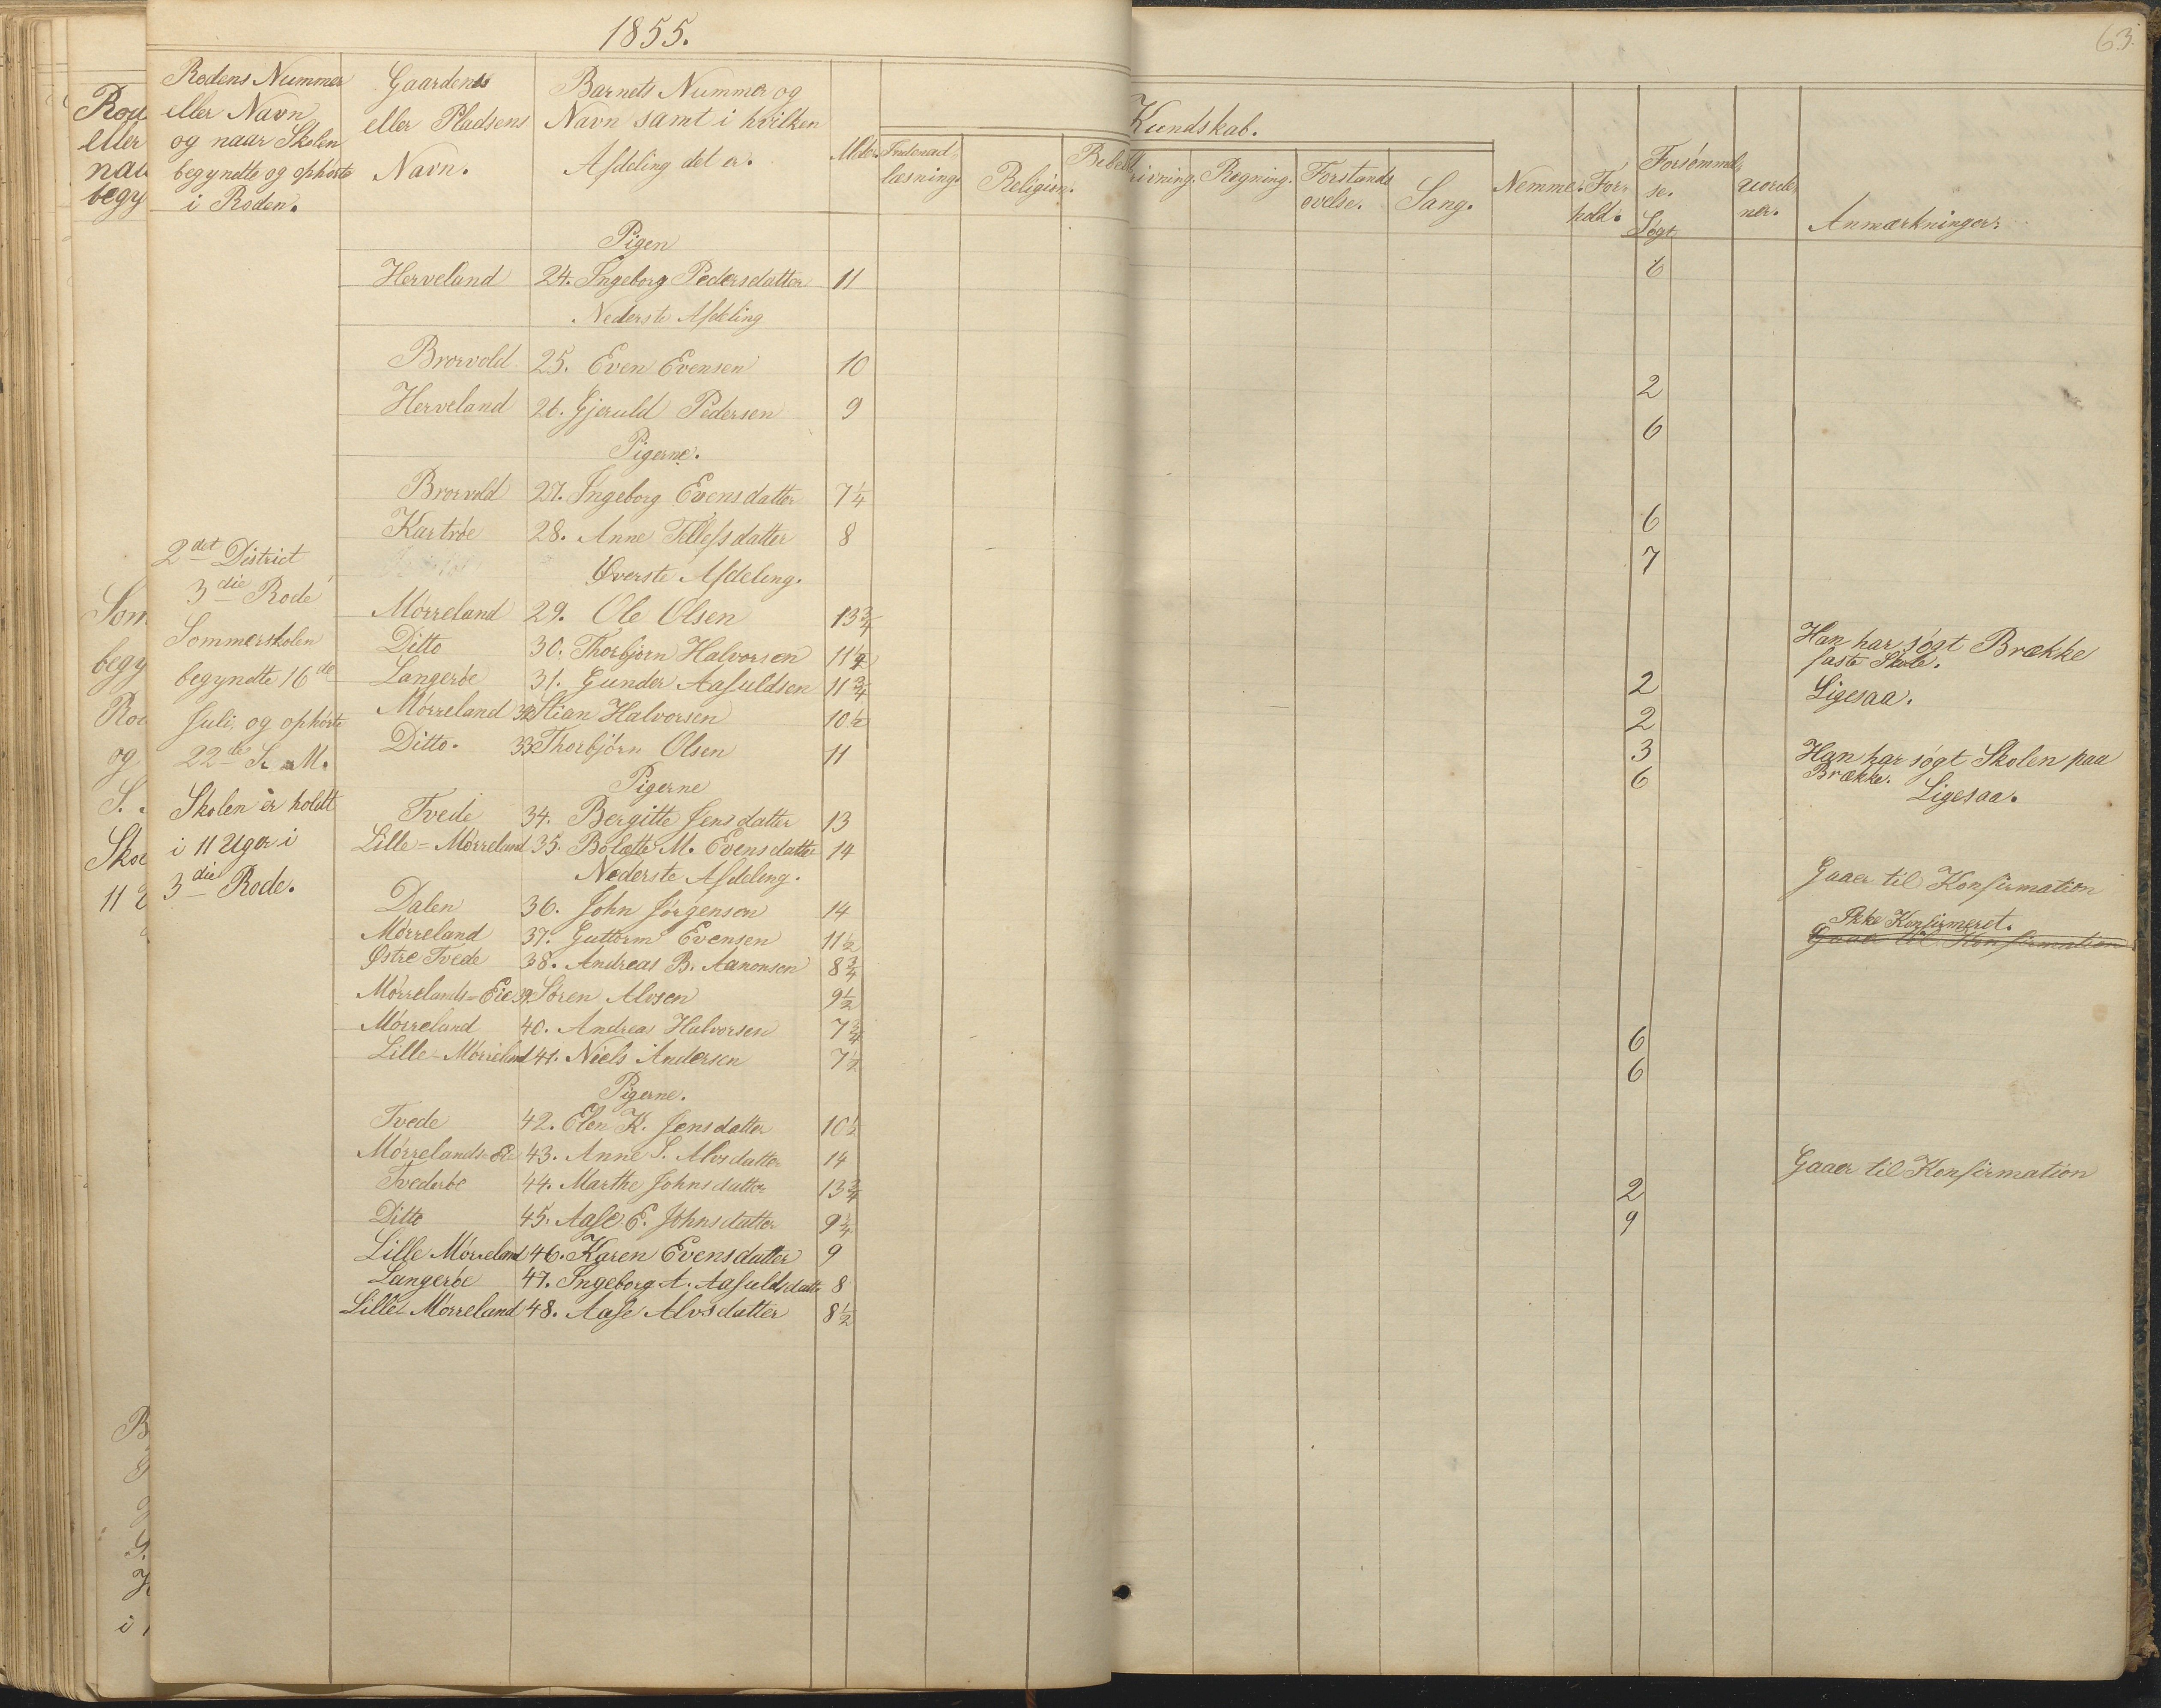 1855.
63.
Rodens Nummer
eller Navn
og naar Skolen
begyndte og ophørte
i Roden.
Gaardens
eller Pladsens
Navn.
Barnets Nummer og
Navn samt i hvilken
Afdeling det er.
Alder.
Kundskab.
Indenad-
læsning.
Religion.
Bibel
rivning.
Regning.
Forstands
øvelse.
Sang.
Nemme.
For-
hold.
Forsømmel-
se.
Søgt
Uorde-
ner.
Anmærkninger.
Pigen
Herveland 24. Ingeborg Pedersdatter 11 6
Nederste Afdeling
Brorvold 25. Even Evensen 10 2
Herveland 26. Gjeruld Pedersen 9 6
Pigerne.
Brorvold 27. Ingeborg Evensdatter 7 1/4 6
Kartrøe 28. Anne Tellefsdatter 8 7
2det District
3die Rode
Sommerskolen
begyndte 16de
Juli, og ophørte
22de S. M.
Skolen er holdt
i 11 Uger i
3die Rode.
Øverste Afdeling.
Mørreland 29. Ole Olsen 13 3/4 Han har søgt Brække
faste Skole.
Ditto 30. Thorbjørn Halvorsen 11 1/2 2 Ligesaa.
Langerøe 31. Gunder Aasuldsen 11 3/4 2
Mørreland 32. Stian Halvorsen 10 1/2 3 Han har søgt Skolen paa
Brække.
Ditto. 33. Thorbjørn Olsen 11 6 Ligesaa.
Pigerne
Tvede 34. Bergitte Jensdatter 13
Lille-Mørreland 35. Bolette M. Evensdatter 14 Gaaer til Konfirmation
Nederste Afdeling.
Dalen 36. John Jørgensen 14 Ikke Konfirmeret.
Gaaer til Konfirmation
Mørreland 37. Guttorm Evensen 11 1/2
Østre Tvede 38. Andreas B. Aanonsen 8 3/4
Mørrelands-Eie 39. Søren Alvsen 9 1/2
Mørreland 40. Andreas Halvorsen 7 3/4 6
Lille-Mørreland 41. Niels Andersen 7 1/2 6
Pigerne.
Tvede 42. Elen K. Jensdatter 10 1/2
Mørrelands-Eie 43. Anne S. Alvsdatter 14 Gaaer til Konfirmation
Tvederøe 44. Marthe Johnsdatter 13 3/4 2
Ditto 45. Aase E. Johnsdatter 9 1/4 9
Lille Mørreland 46. Karen Evensdatter 9
Langerøe 47. Ingeborg A. Aasuldsdatter 8
Lille Mørreland 48. Aase Alvsdatter 8 1/2